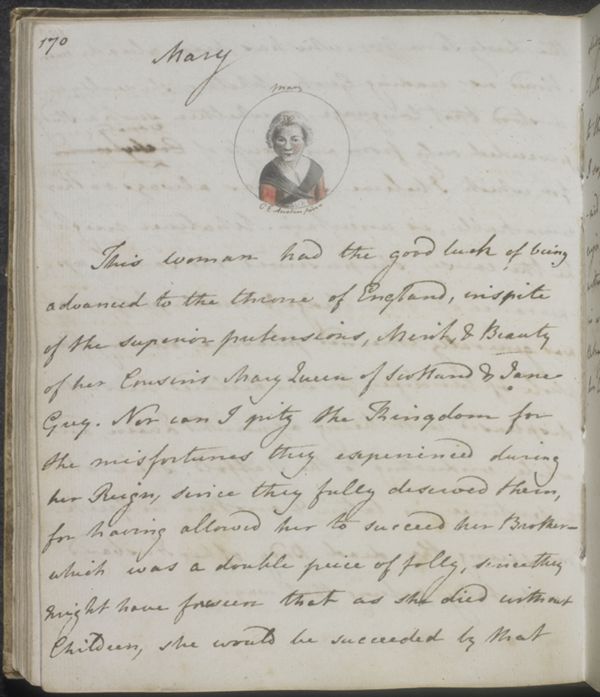 170
Mary
Mary
C E Austen pinx
This woman had the good luck of being
advanced to the throne of England, inspite
of the superior pretensions, Merit, & Beauty
of her Cousins Mary Queen of Scotland & Jane
Grey. Nor can I pity the Kingdom for
the misfortunes they experienced during
her Reign, since they fully deserved them,
for having allowed her to succeed her Brother-
which was a double peice of folly, since they
might have foreseen that as she died without
Children, she would be succeeded by that